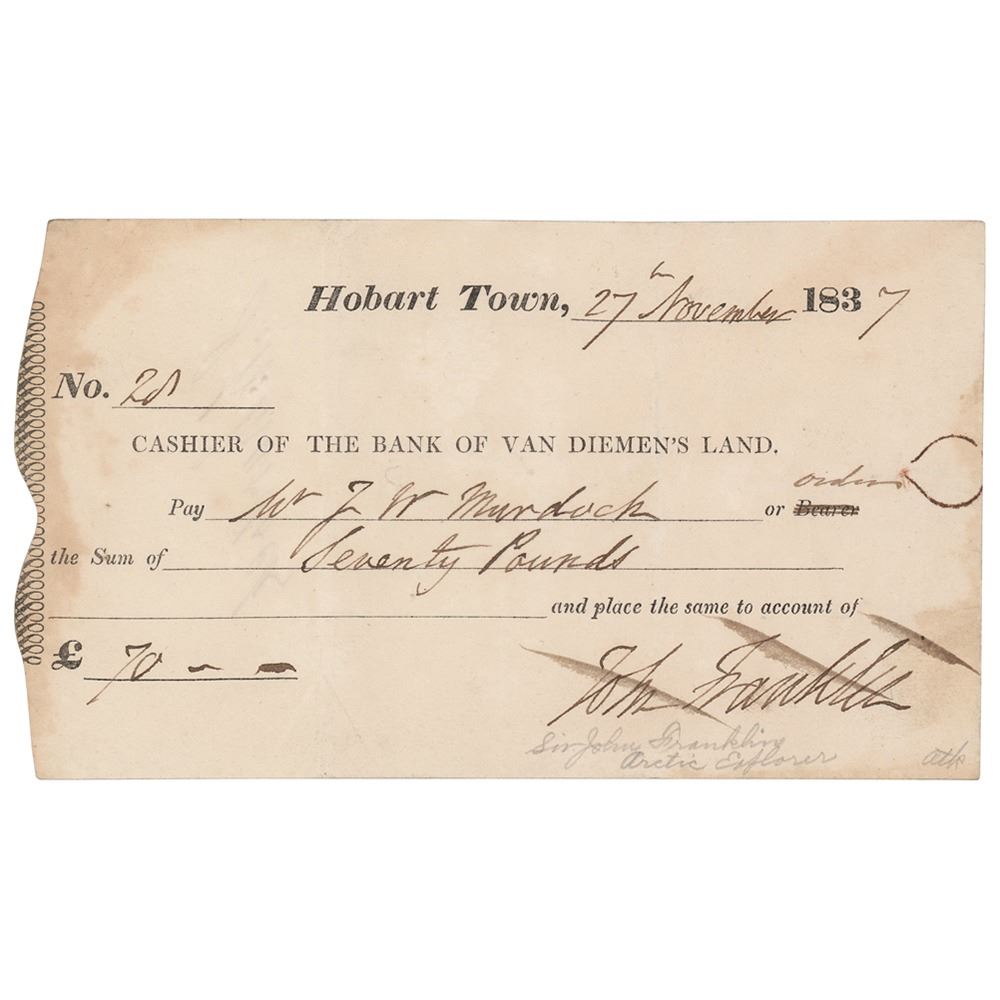 Hobart Town, 27th November 1837
No. 28
CASHIER OF THE BANK OF VAN DIEMEN'S LAND.
order
Pay Mr J W Murdock or Bearer
the Sum of Seventy Pounds
and place the same to account of
£ 70 - -
John Franklin
Sir John Franklin
Arctic Explorer